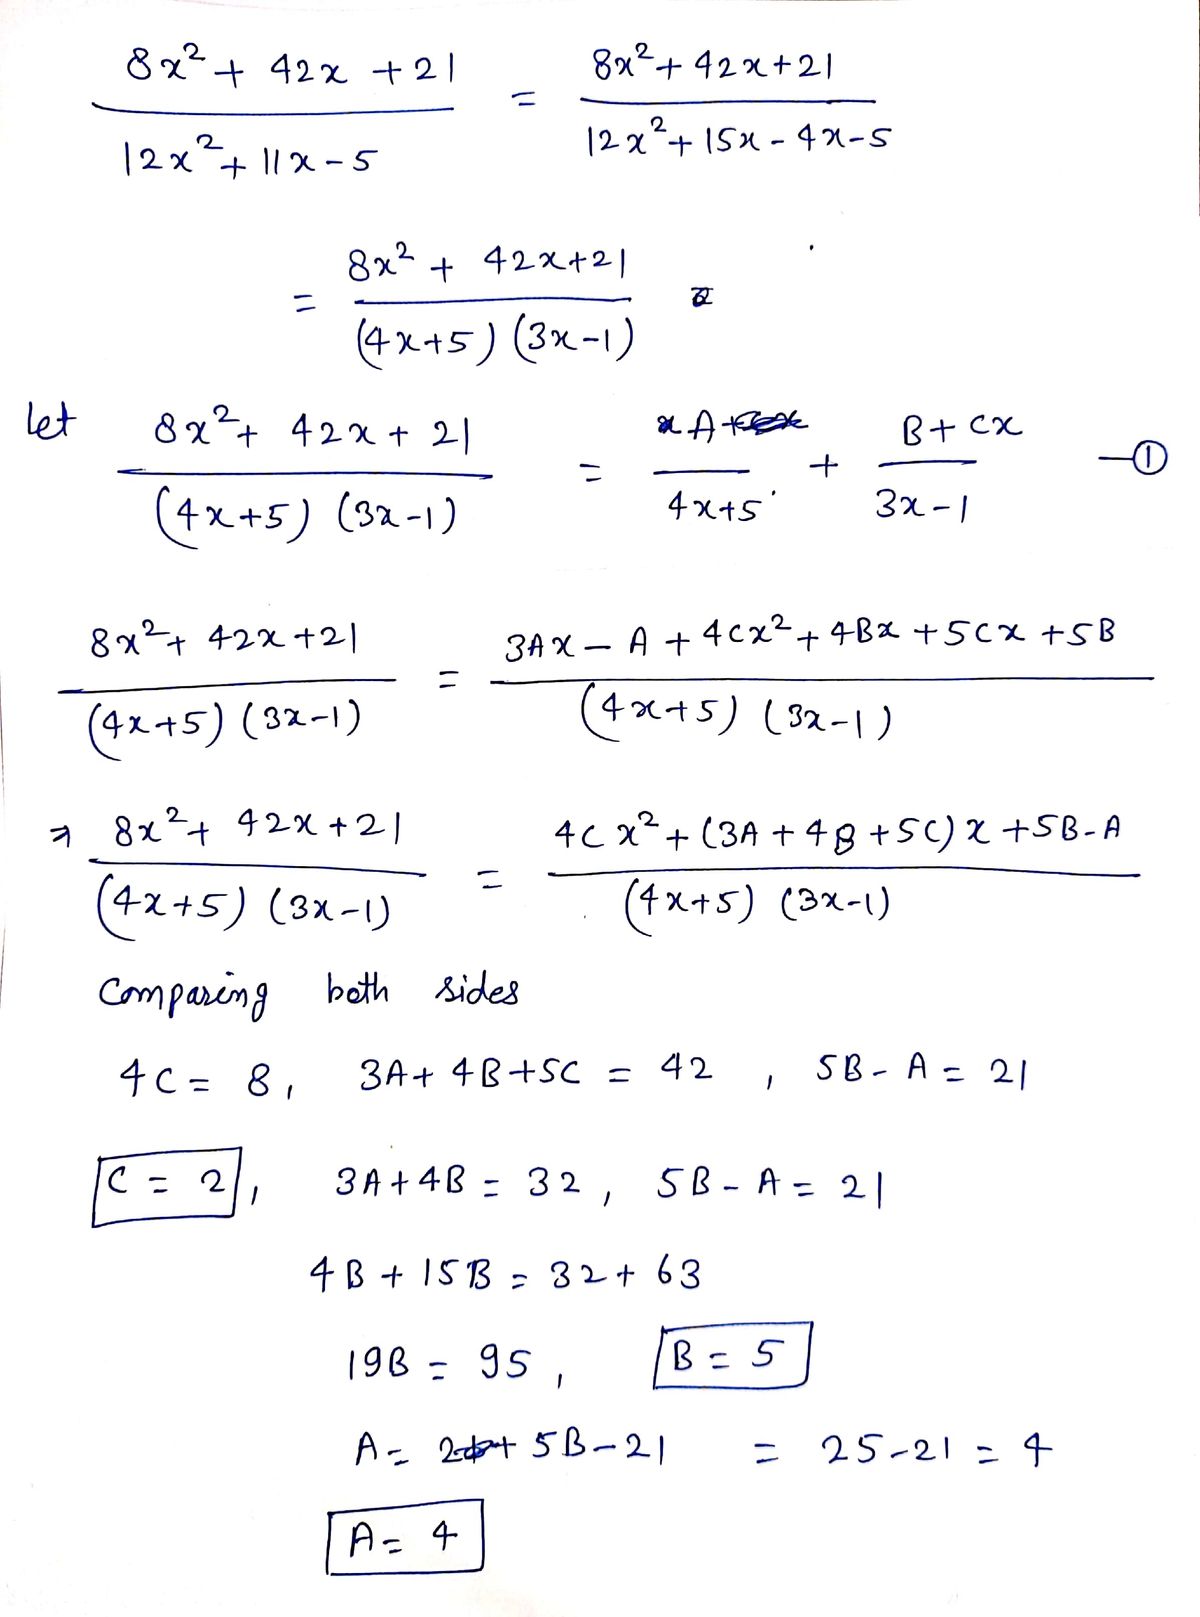 8x² + 42x + 21 / 12x² + 11x - 5 = 8x² + 42x + 21 / 12x² + 15x - 4x - 5
= 8x² + 42x + 21 / (4x+5) (3x-1)
let 8x² + 42x + 21 / (4x+5) (3x-1) = A / 4x+5 + B + Cx / 3x-1 —①
8x² + 42x + 21 / (4x+5) (3x-1) = 3Ax - A + 4Cx² + 4Bx + 5Cx + 5B / (4x+5) (3x-1)
⇒ 8x² + 42x + 21 / (4x+5) (3x-1) = 4Cx² + (3A + 4B + 5C) x + 5B - A / (4x+5) (3x-1)
Comparing both sides
4C = 8, 3A + 4B + 5C = 42, 5B - A = 21
C = 2, 3A + 4B = 32, 5B - A = 21
4B + 15B = 32 + 63
19B = 95, B = 5
A = 5B - 21 = 25 - 21 = 4
A = 4